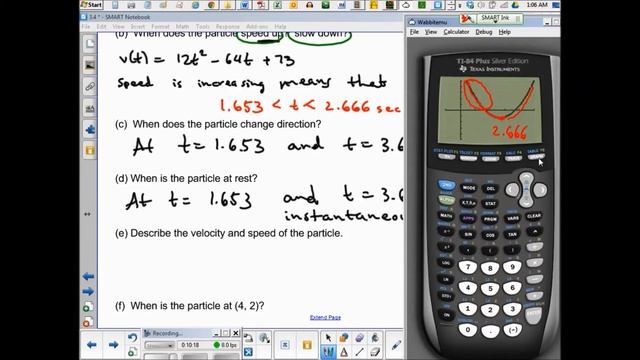 3.4 * - SMART Notebook
(b) When does the particle speed up? slow down?
v(t) = 12t² - 64t + 73
speed is increasing means that
1.653 < t < 2.666 sec
(c) When does the particle change direction?
At t = 1.653 and t = 3.6
(d) When is the particle at rest?
At t = 1.653 and t = 3.6
instantaneou
(e) Describe the velocity and speed of the particle.
(f) When is the particle at (4, 2)?
Extend Page
Recording...
0:10:18
0.0 fps
1:06 AM
Wabbitemu
SMART Ink
TI-84 Plus Silver Edition
TEXAS INSTRUMENTS
2.666
STAT PLOT F1 TBLSET F2 FORMAT F3 CALC F4 TABLE F5
2ND
MODE
DEL
ALPHA
X,T,θ,n
STAT
MATH
APPS
PRGM
VARS
CLEAR
7
8
9
4
5
6
1
2
3
0
(-)